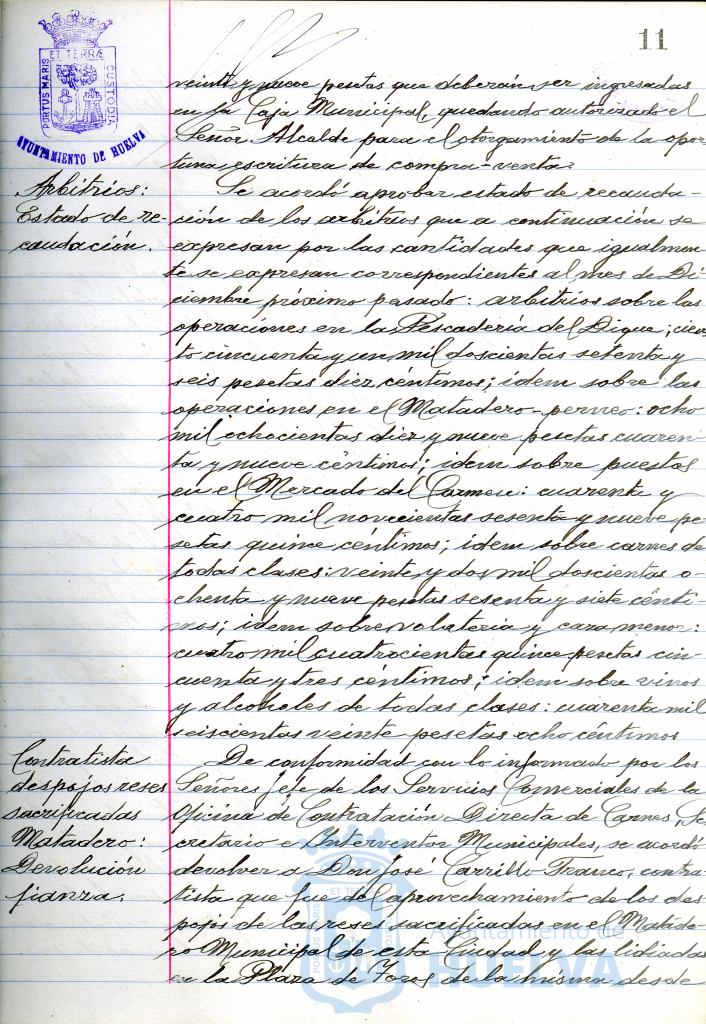 11
PORTUS MARIS ET TERRÆ CUSTODIA
AYUNTAMIENTO DE HUELVA
veinte y nueve pesetas que deberán ser ingresadas
en la Caja Municipal, quedando autorizado el
Señor Alcalde para el otorgamiento de la opor-
tuna escritura de compra-venta.
Arbitrios:
Estado de re-
caudación.
Se acordó aprobar estado de recauda-
ción de los arbitrios que a continuación se
expresan por las cantidades que igualmen-
te se expresan correspondientes al mes de Di-
ciembre próximo pasado: arbitrios sobre las
operaciones en la Pescadería del Dique; cien-
to cincuenta y un mil doscientas setenta y
seis pesetas diez céntimos; idem sobre las
operaciones en el Matadero-perneo: ocho
mil ochocientas diez y nueve pesetas cuaren-
ta y nueve céntimos; idem sobre puestos
en el Mercado del Carmen: cuarenta y
cuatro mil novecientas sesenta y nueve pe-
setas quince céntimos; idem sobre carnes de
todas clases: veinte y dos mil doscientas o-
chenta y nueve pesetas sesenta y siete cénti-
mos; idem sobre volatería y caza menor:
cuatro mil cuatrocientas quince pesetas cin-
cuenta y tres céntimos; idem sobre vinos
y alcoholes de todas clases: cuarenta mil
seiscientas veinte pesetas ocho céntimos
Contratista
despojos reses
sacrificadas
Matadero:
Devolución
fianza.
De conformidad con lo informado por los
Señores Jefe de los Servicios Comerciales de la
Oficina de Contratación Directa de Carnes, Se-
cretario e Interventor Municipales, se acordó
devolver a Don José Carrillo Franco, contra-
tista que fue del aprovechamiento de los des-
pojos de las reses sacrificadas en el Matade-
ro Municipal de esta Ciudad y las lidiadas
en la Plaza de Toros de la misma desde
Ayuntamiento de
HUELVA